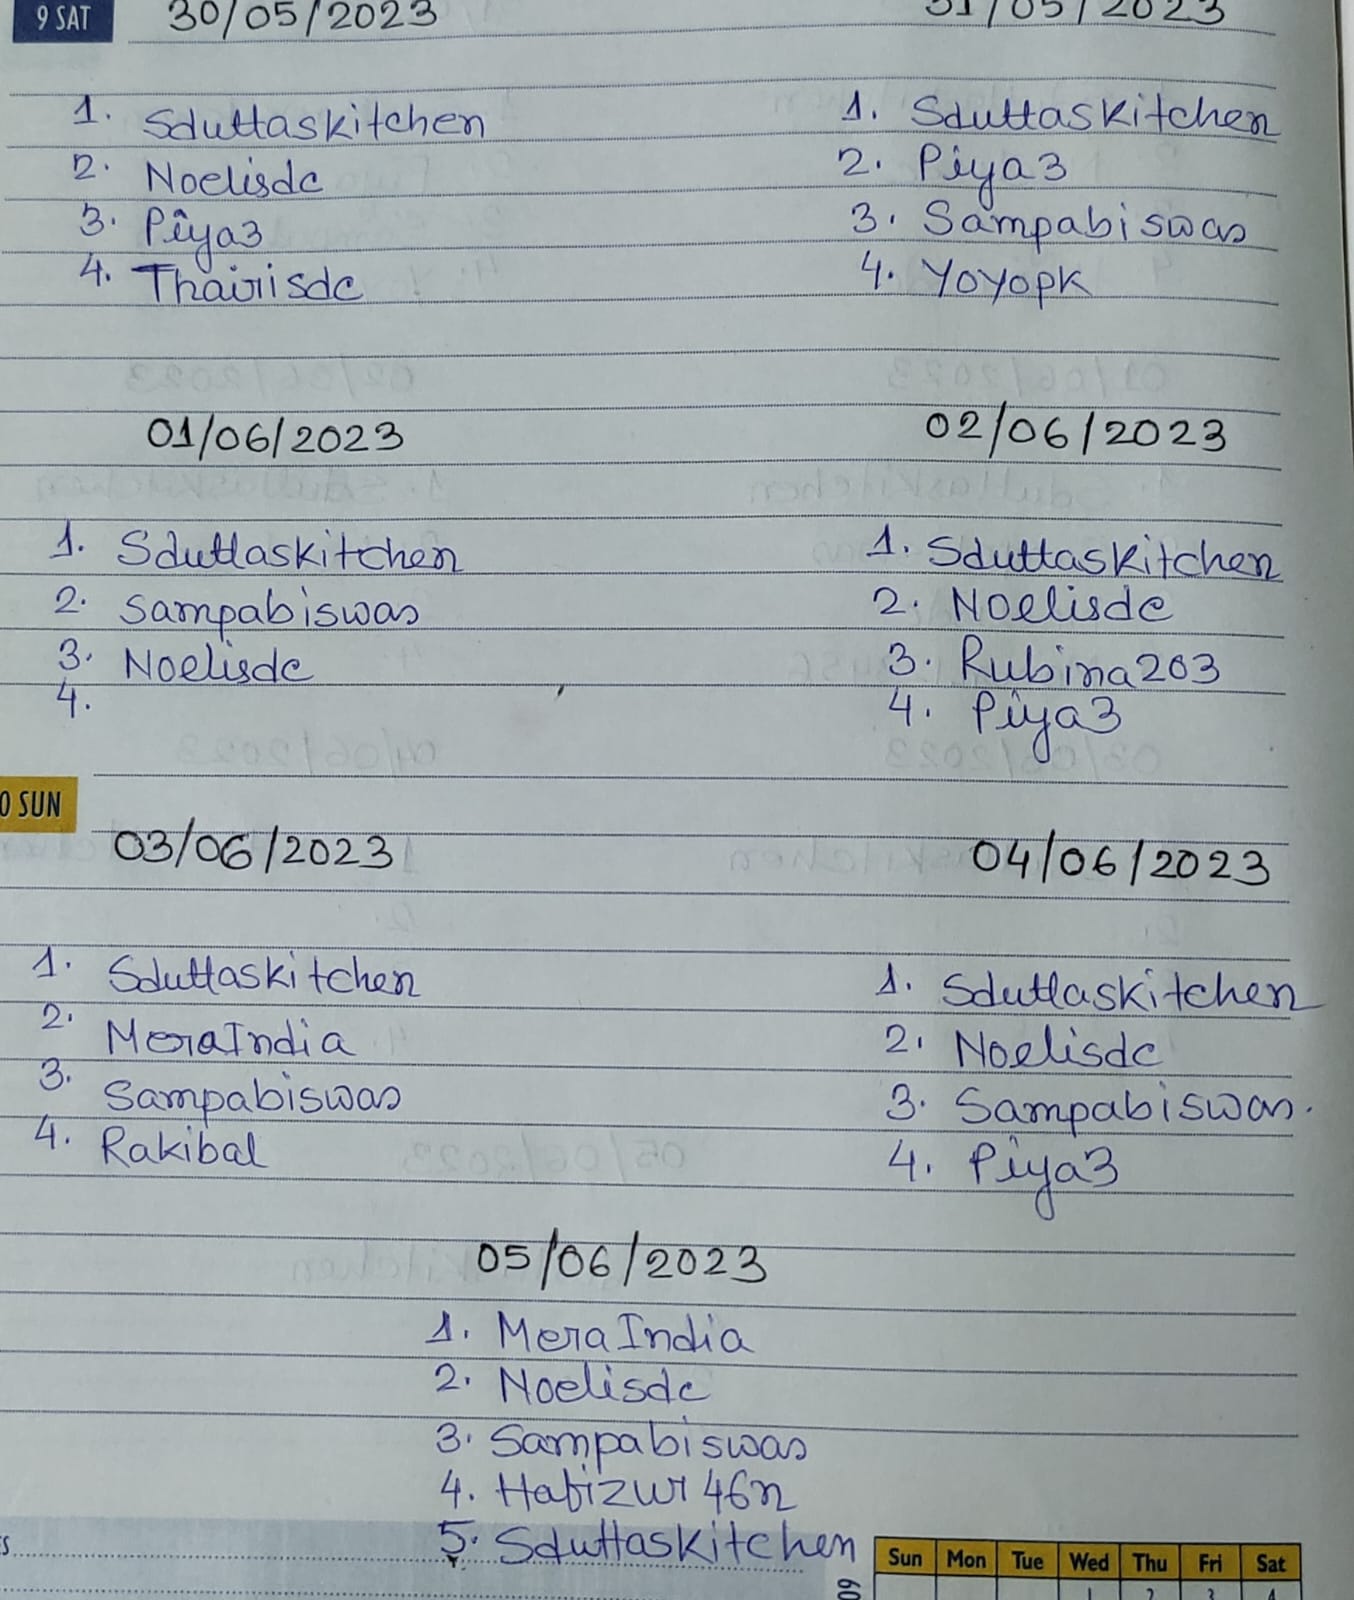 9 SAT
30/05/2023
31/05/2023
1. Sduttaskitchen
2. Noelisdc
3. Piya3
4. Thairisdc
1. Sduttaskitchen
2. Piya3
3. Sampabiswas
4. Yoyopk
01/06/2023
1. Sduttaskitchen
2. Sampabiswas
3. Noelisdc
4.
02/06/2023
1. Sduttaskitchen
2. Noelisdc
3. Rubina203
4. Piya3
0 SUN
03/06/2023
1. Sduttaskitchen
2. MeraIndia
3. Sampabiswas
4. Rakibal
04/06/2023
1. Sduttaskitchen
2. Noelisdc
3. Sampabiswas.
4. Piya3
05/06/2023
1. MeraIndia
2. Noelisdc
3. Sampabiswas
4. Hafizur46n
5. Sduttaskitchen
Sun Mon Tue Wed Thu Fri Sat
1 2 3 4